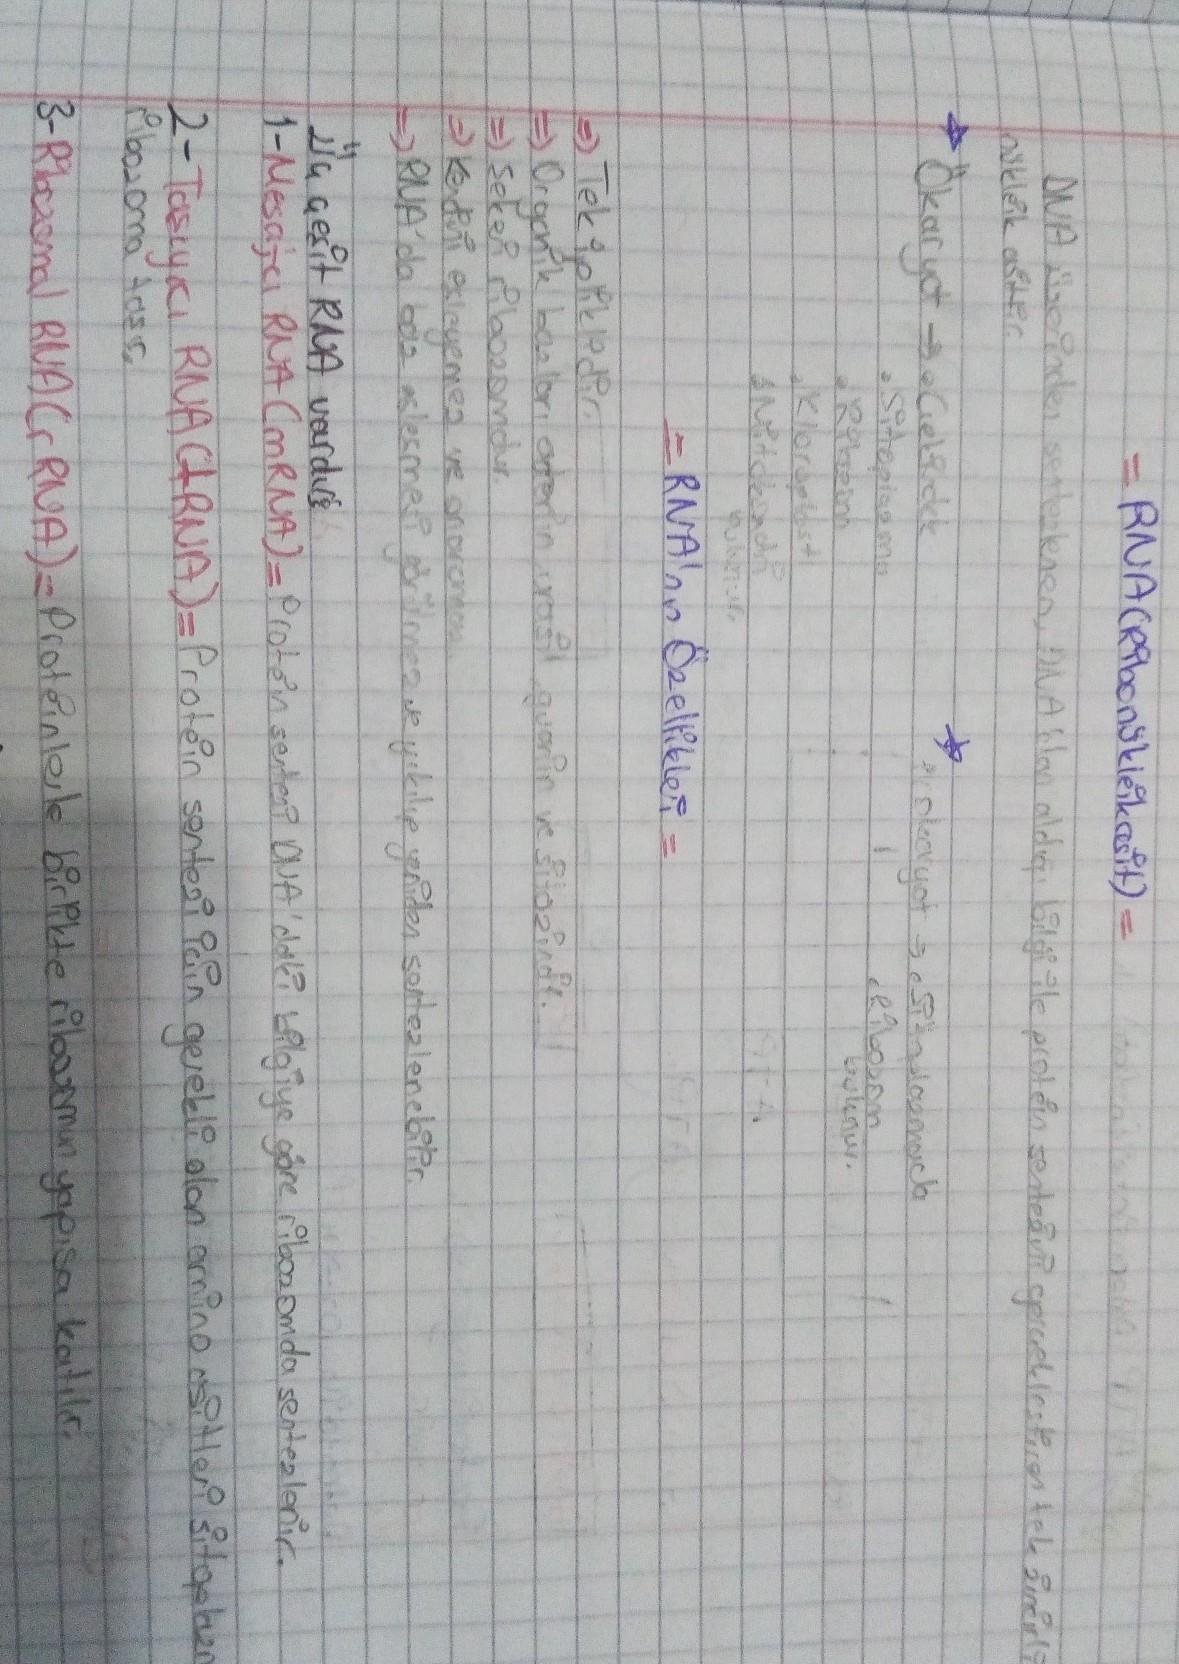 = RNA(Ribonükleikasit) =
DNA üzerinden sentezlenen, DNA'dan aldığı bilgi ile protein sentezini gerçekleştiren tek zincirli
nükleik asittir.
Ökaryot → • Çekirdek
• Sitoplazma
• Ribozom
• Kloroplast
• Mitokondri
bulunur.
Prokaryot → • Sitoplazmada
• Ribozom
bulunur.
= RNA'nın Özellikleri =
⇒ Tek ipliklidir.
⇒ Organik bazları adenin, urasil, guanin ve sitozindir.
⇒ Şekeri ribozomdur.
⇒ Kendini eşleyemez ve onaramaz.
⇒ RNA'da baz eşleşmesi görülmez ve yıkılıp yeniden sentezlenebilir.
Üç çeşit RNA vardır;
1-Mesajcı RNA(mRNA)= Protein sentezi DNA'daki bilgiye göre ribozomda sentezlenir.
2-Taşıyıcı RNA(tRNA)= Protein sentezi için gerekli olan amino asitleri
ribozoma taşır.
3-Ribozomal RNA(rRNA)= Proteinlerle birlikte ribozomun yapısa katılır.